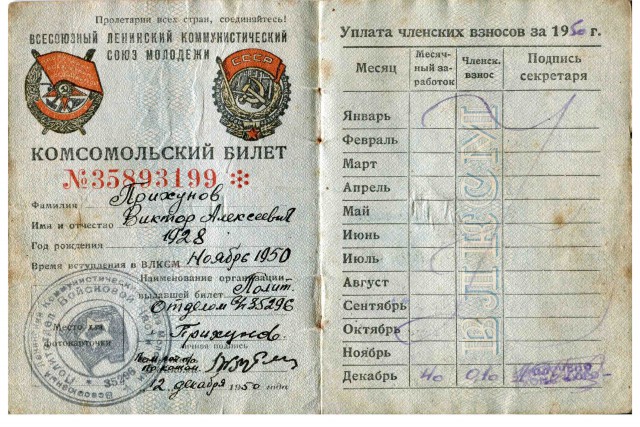 Пролетарии всех стран, соединяйтесь!
ВСЕСОЮЗНЫЙ ЛЕНИНСКИЙ КОММУНИСТИЧЕСКИЙ
СОЮЗ МОЛОДЕЖИ
СССР
КОМСОМОЛЬСКИЙ БИЛЕТ
№35893199
Фамилия Прихунов
Имя и отчество Виктор Алексеевич
Год рождения 1928
Время вступления в ВЛКСМ Ноябрь 1950
Наименование организации,
выдавшей билет Полит.
Отделом 35296
Место для
фотокарточки
Прихунов
личная подпись
12 декабря 1950 года
Уплата членских взносов за 1950 г.
Месяц
Месяч-
ный за-
работок
Членск.
взнос
Подпись
секретаря
Январь
Февраль
Март
Апрель
Май
Июнь
Июль
Август
Сентябрь
Октябрь
Ноябрь
Декабрь 40 0,10
ВЛКСМ